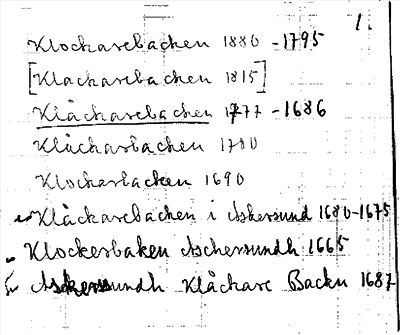 1.
Klockarebacken 1880 - 1795
[Klockarebacken 1815]
Klåckarebacken 1777 - 1686
Klåckarbacken 1700
Klockarbacken 1690
Klåckarebacken i Askersund 1680-1675
Klockerbaken Aschersundh 1665
Askersundh Klåckare Backn 1687